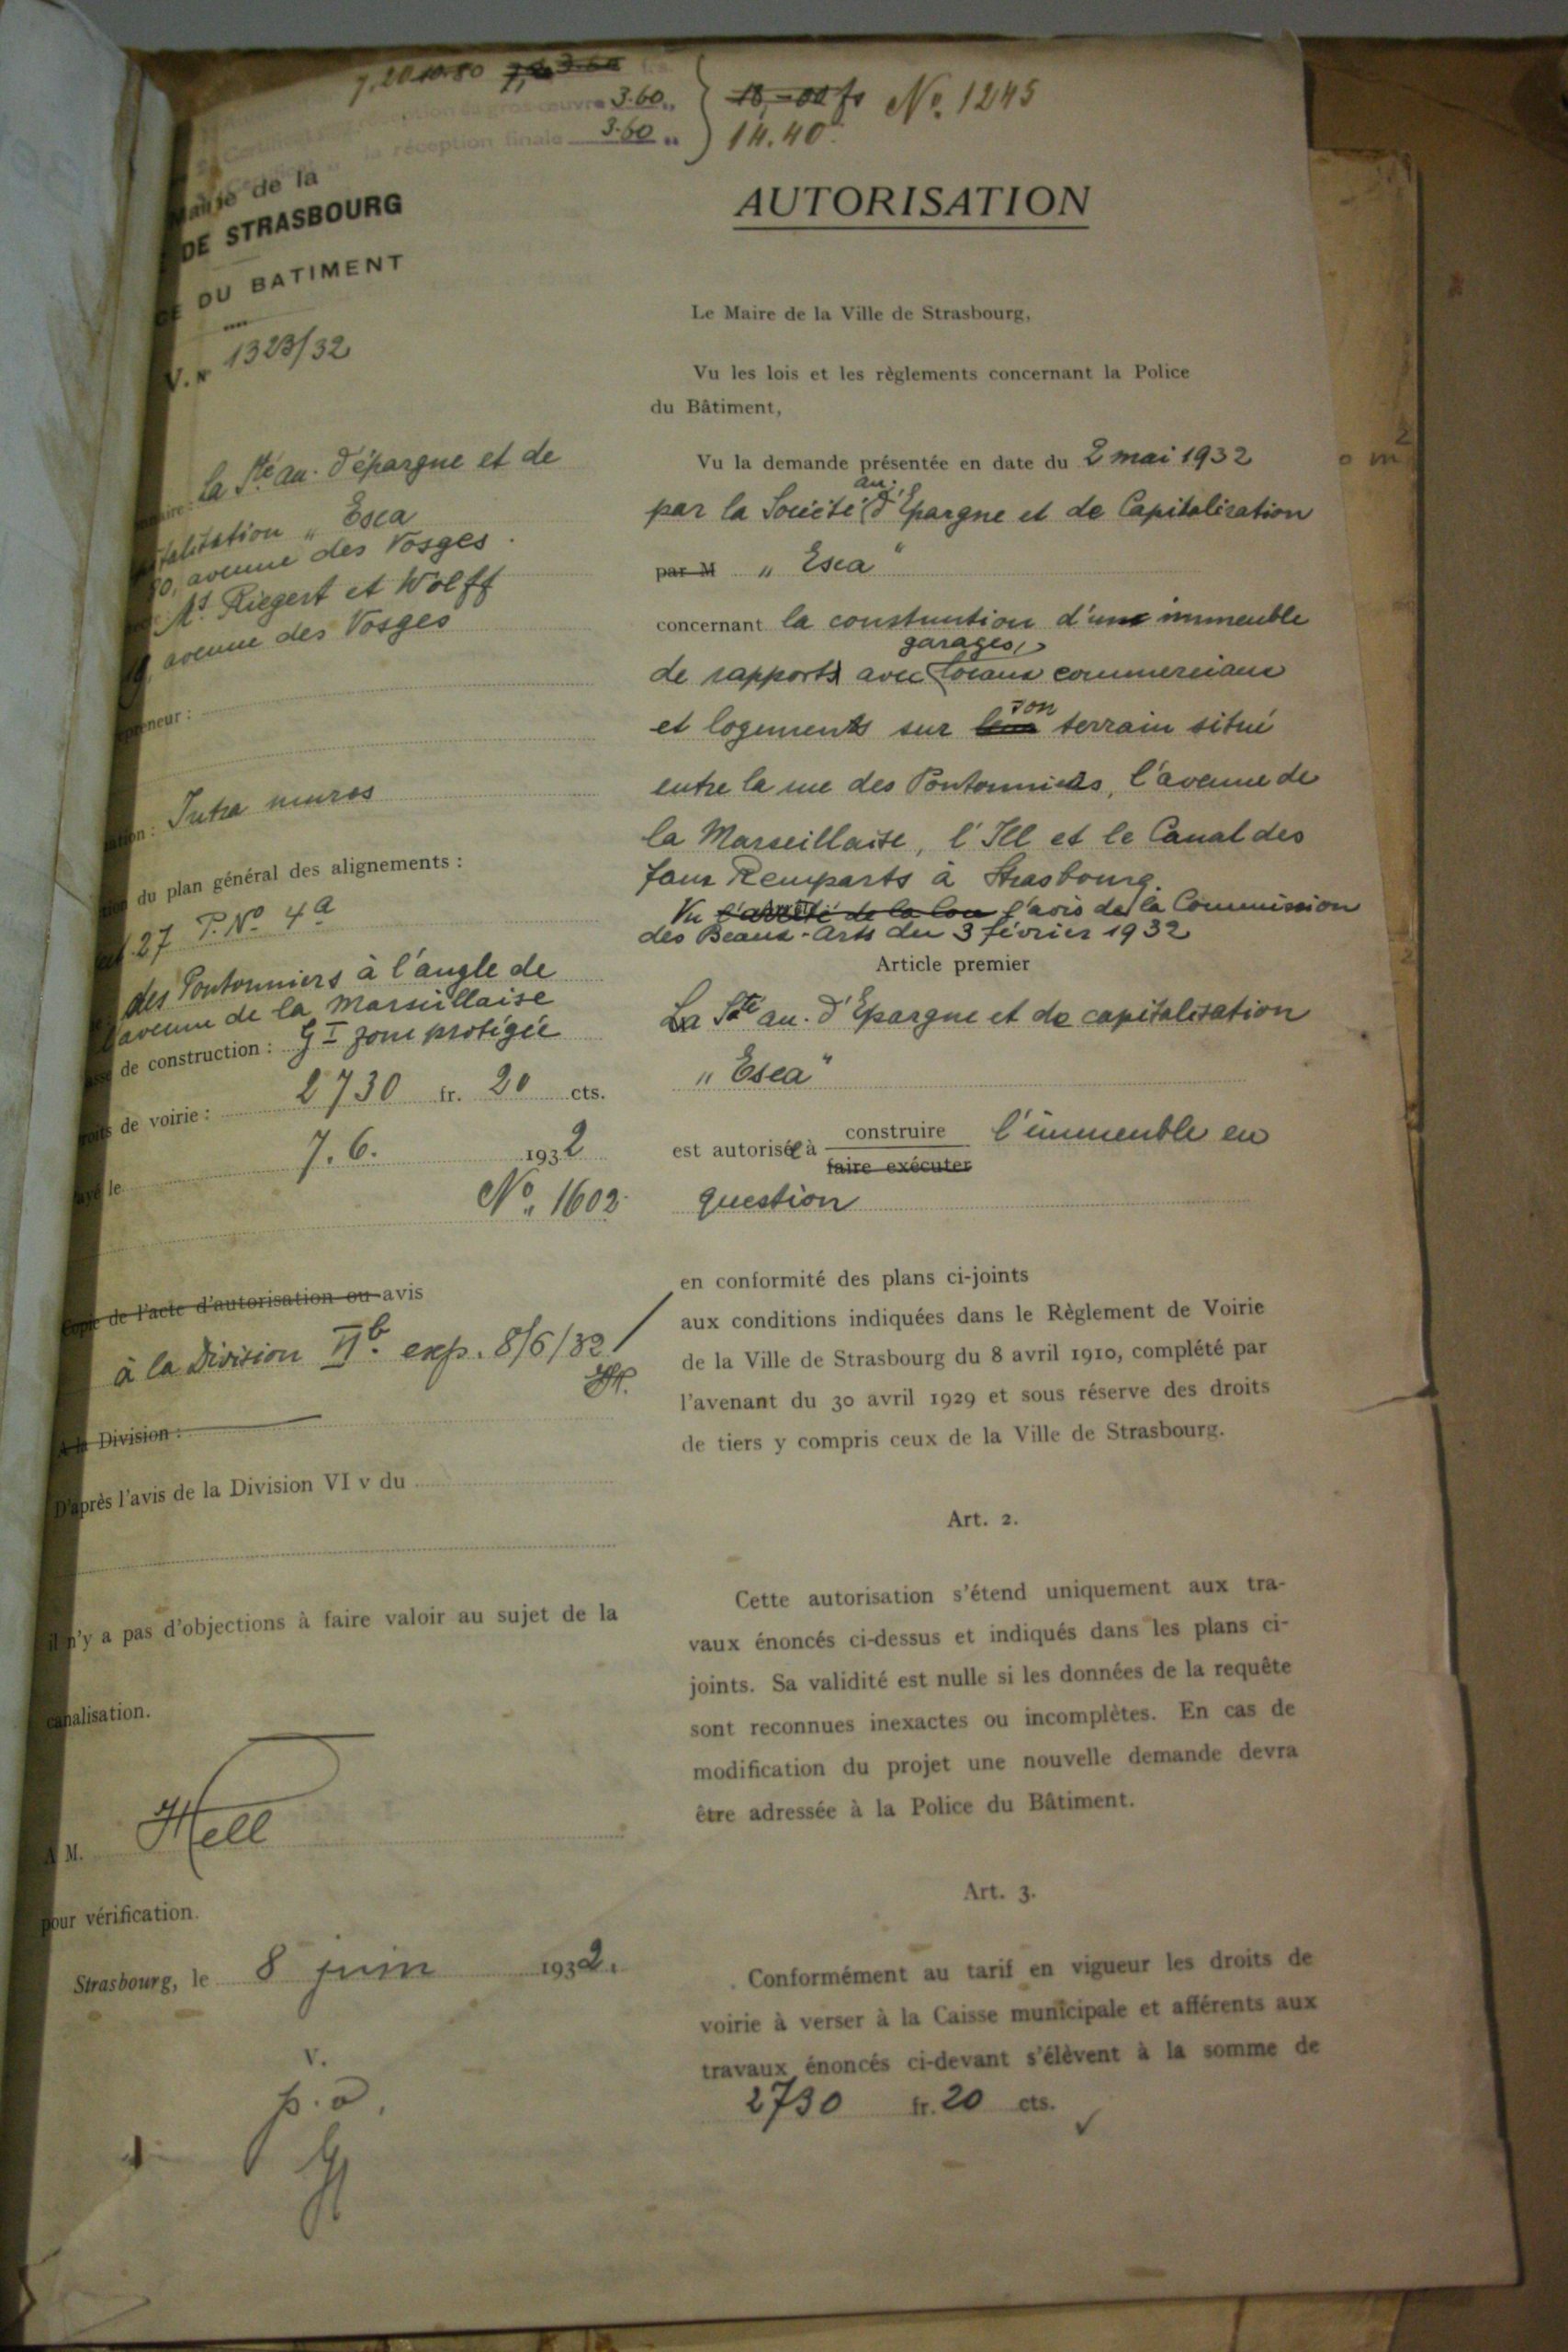 7.20 10.80
3.60 „
la réception finale 3.60 „
18,00 fr
14.40
No. 1245
de la
DE STRASBOURG
DU BATIMENT
1323/32
la Sté an. d'épargne et de
"Esca
avenue des Vosges
Ms Riegert et Wolff
avenue des Vosges
Intra muros
du plan général des alignements :
27 P. No 4a
des Pontonniers à l'angle de
l'avenue de la Marseillaise
de construction : G I zone protégée
de voirie : 2730 fr. 20 cts.
le 7. 6. 1932
No. 1602
Copie de l'acte d'autorisation ou avis
à la Division II b. exp. 8/6/32
A la Division :
D'après l'avis de la Division VI v du
il n'y a pas d'objections à faire valoir au sujet de la
canalisation.
A M. Hell
pour vérification.
Strasbourg, le 8 juin 1932.
V.
p. o.
AUTORISATION
Le Maire de la Ville de Strasbourg,
Vu les lois et les règlements concernant la Police
du Bâtiment,
Vu la demande présentée en date du 2 mai 1932
par la Société an. d'Epargne et de Capitalisation
par M „ Esca "
concernant la construction d'un immeuble
de rapport avec garages, locaux commerciaux
et logements sur son terrain situé
entre la rue des Pontonniers, l'avenue de
la Marseillaise, l'Ill et le Canal des
faux Remparts à Strasbourg.
Vu l'avis de la Commission
des Beaux-Arts du 3 février 1932
Article premier
La Sté an. d'Epargne et de capitalisation
„ Esca "
est autorisée à construire l'immeuble en
faire exécuter
question
en conformité des plans ci-joints
aux conditions indiquées dans le Règlement de Voirie
de la Ville de Strasbourg du 8 avril 1910, complété par
l'avenant du 30 avril 1929 et sous réserve des droits
de tiers y compris ceux de la Ville de Strasbourg.
Art. 2.
Cette autorisation s'étend uniquement aux tra-
vaux énoncés ci-dessus et indiqués dans les plans ci-
joints. Sa validité est nulle si les données de la requête
sont reconnues inexactes ou incomplètes. En cas de
modification du projet une nouvelle demande devra
être adressée à la Police du Bâtiment.
Art. 3.
Conformément au tarif en vigueur les droits de
voirie à verser à la Caisse municipale et afférents aux
travaux énoncés ci-devant s'élèvent à la somme de
2730 fr. 20 cts.